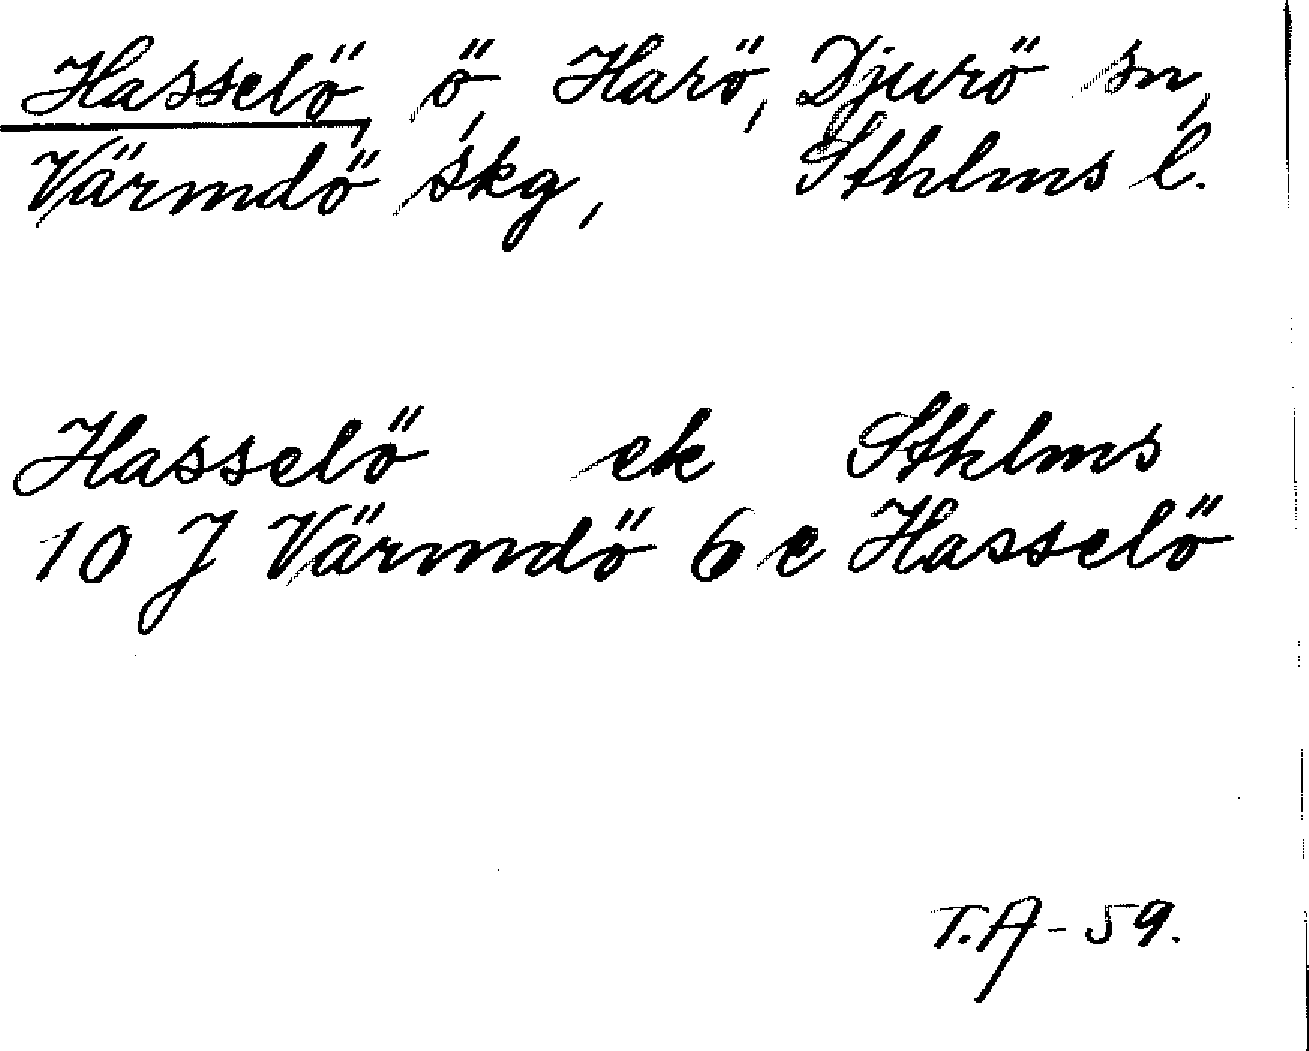 Hasselö, ö, Harö, Djurö sn,
Värmdö skg, Sthlms l.
Hasselö ek Sthlms
10 J Värmdö 6 e Hasselö
T.A-59.